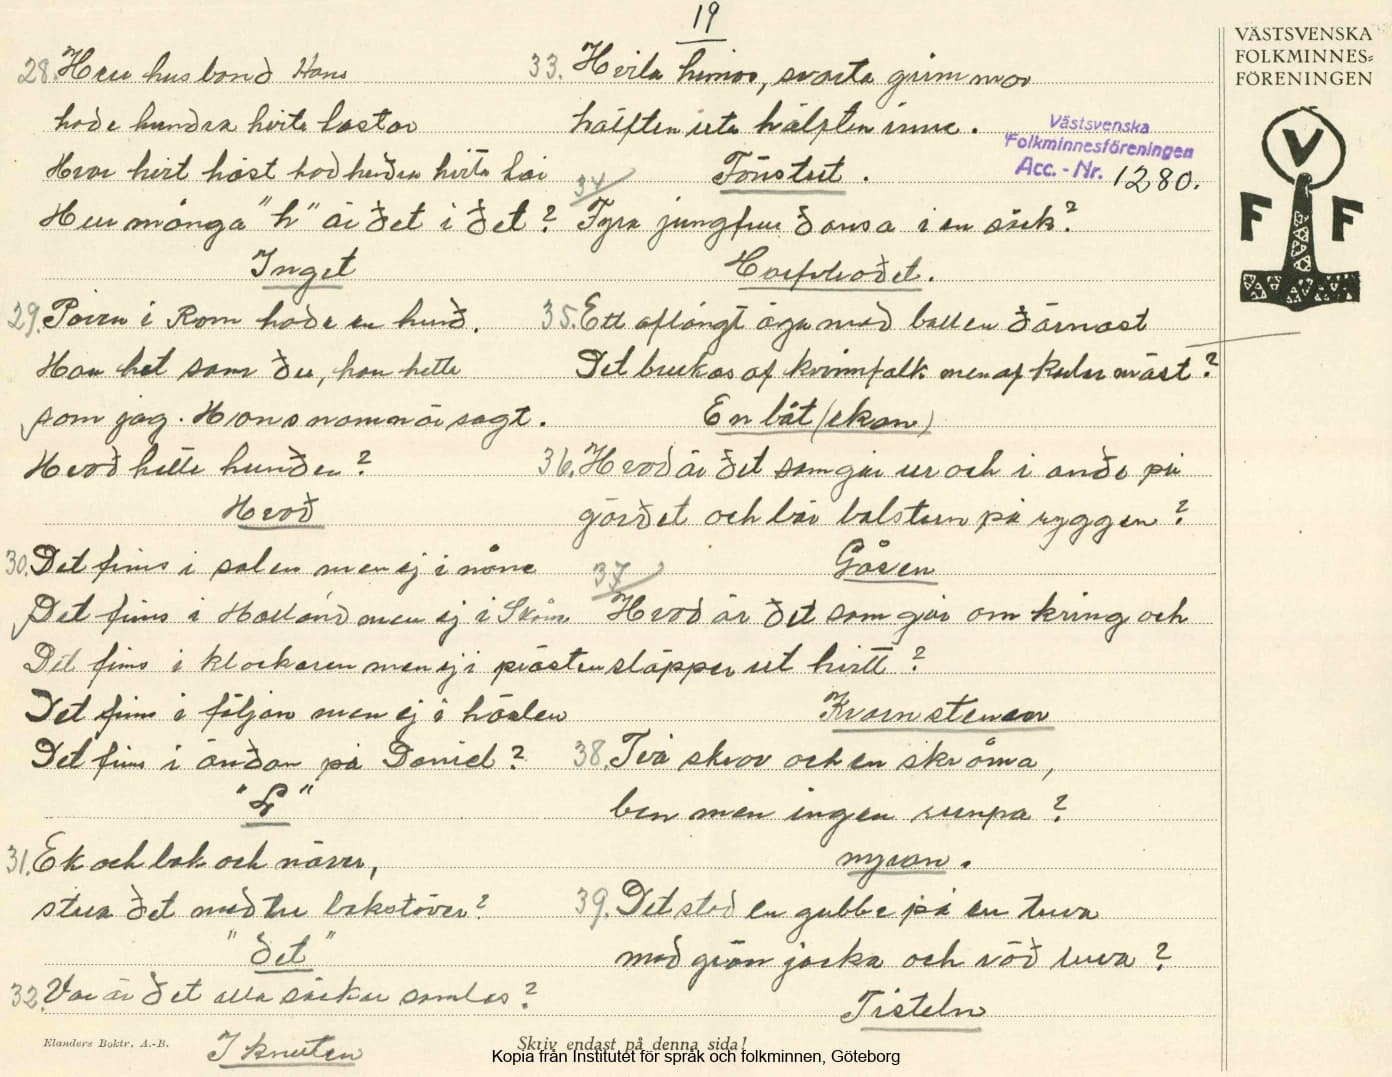 19
28. Herr husbond Hans
hade hundra hvita hästar
Hvar hvit häst had hundra hvita hår
Hur många "h" är det i det?
Inget
29. Påven i Rom hade en hund.
Han het som du, han hette
som jag. Hans namn är sagt.
Hvad hette hunden?
Hvad
30. Det fins i salen men ej i
Det fins i Halland men ej i Skåne
Det fins i klockaren men ej i prästen
Det fins i följan men ej i
Det fins i ändan på Daniel?
"L"
31. Ek och bok och näver,
stava det med tre bokstäver?
"det"
32. Var är det alla säckar samlas?
I knuten
33. Hvita himor, svarta grimmor
hälften ute hälften inne.
Fönstret.
34
Fyra jungfrur dansa i en säck?
Garfvadet.
35. Ett aflångt öga med ballen därnäst
Det brukas af kvinnfolk men af karlar mäst?
En båt (ekan)
36. Hvad är det som går ur och i ande på
gärdet och bär bolstern på ryggen?
Gåsen
37
Hvad är det som går om kring och
släpper ut hvitt?
Kvarnstenen
38. Två skrov och en skråma,
ben men ingen rumpa?
myran.
39. Det stod en gubbe på en tuva
med grön jacka och röd luva?
Tisteln
VÄSTSVENSKA
FOLKMINNES=
FÖRENINGEN
V
F F
Västsvenska
Folkminnesföreningen
Acc.-Nr. 1280.
Elanders Boktr. A.-B.
Skriv endast på denna sida!
Kopia från Institutet för språk och folkminnen, Göteborg